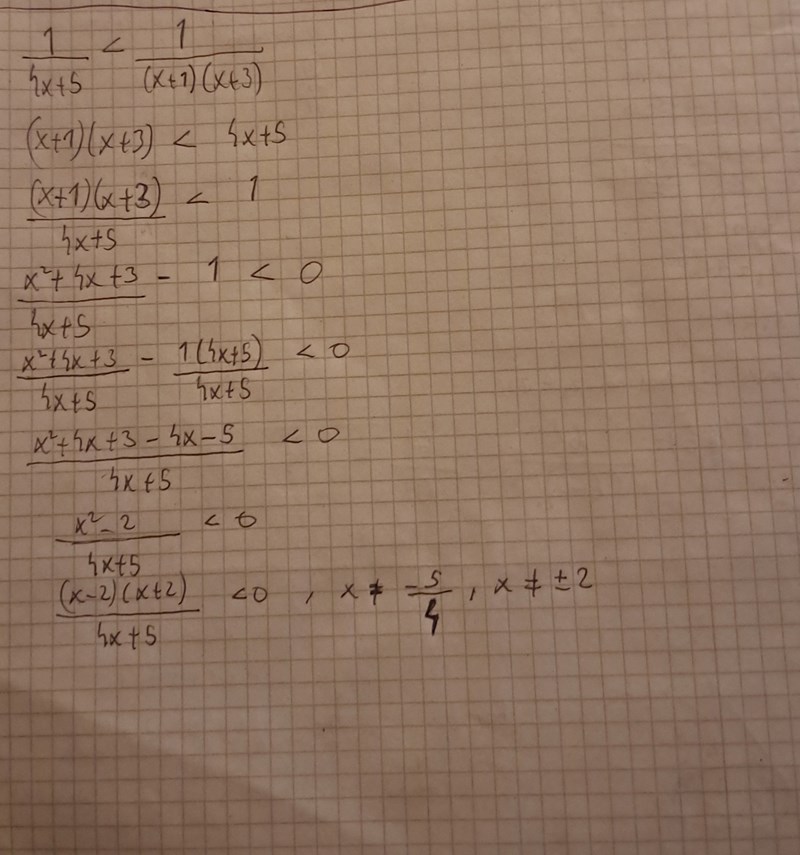 1/(4x+5) < 1/((x+1)(x+3))
(x+1)(x+3) < 4x+5
(x+1)(x+3)/(4x+5) < 1
(x²+4x+3)/(4x+5) - 1 < 0
(x²+4x+3)/(4x+5) - 1(4x+5)/(4x+5) < 0
(x²+4x+3-4x-5)/(4x+5) < 0
(x²-2)/(4x+5) < 0
(x-2)(x+2)/(4x+5) < 0 , x ≠ -5/4 , x ≠ ±2